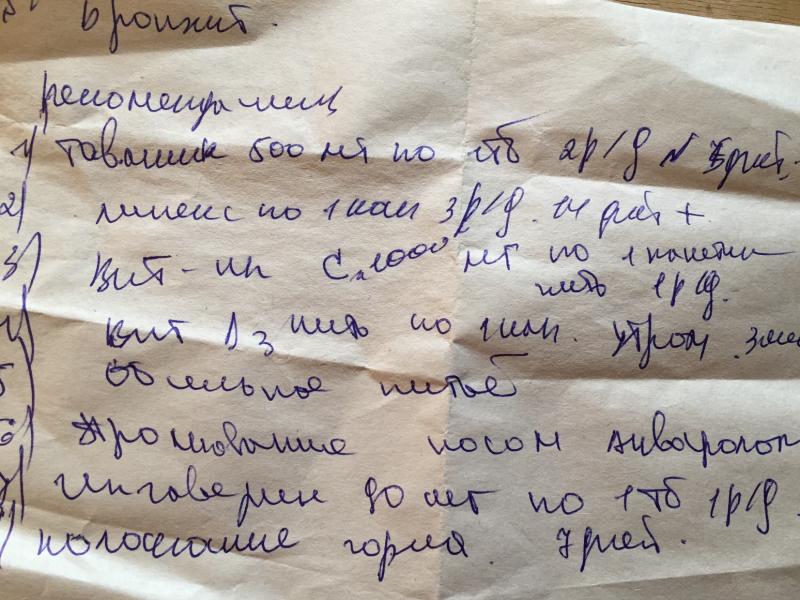 Бронхит.
рекомендации
1) таваник 500 мг по 1тб 2р/д № 5дней.
2) линекс по 1кап 3р/д. 14 дней +
3) Вит-ин С 1000 мг по 1 пакетик
пить 1р/д.
4) Вит Д3 пить по 1кап. утром 3мес
5 Обильное питьё
6) промывание носом аквароном
7) ингаверин 90 мг по 1тб 1р/д.
) полоскание горла. 7дней.